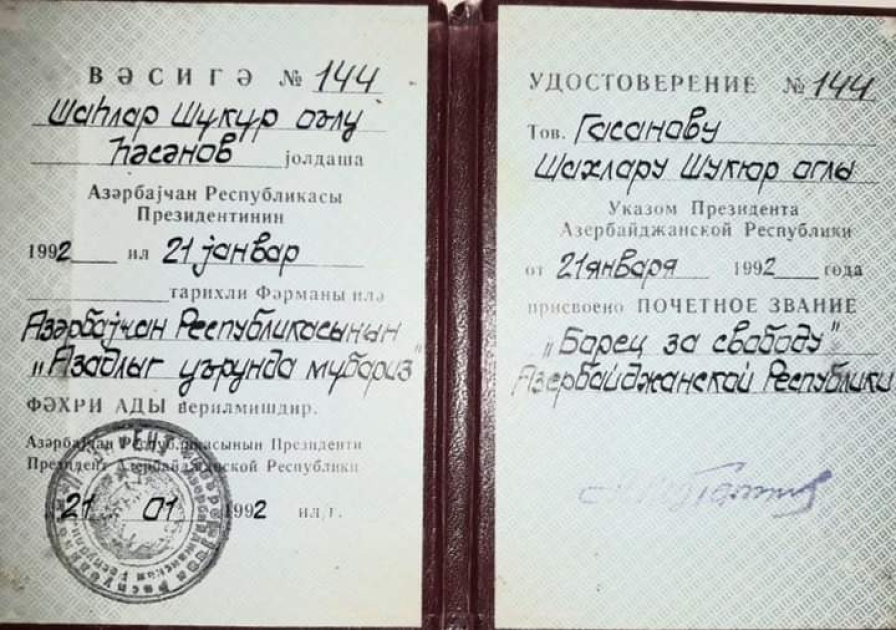 ВӘСИГӘ № 144
Шаһлар Шукур оғлу
Һәсәнов јолдаша
Азәрбајҹан Республикасы
Президентинин
1992 ил 21 јанвар
тарихли Фәрманы илә
Азәрбајҹан Республикасынын
„Азадлыг уғрунда мубариз"
ФӘХРИ АДЫ верилмишдир.
Азәрбајҹан Республикасынын Президенти
Президент Азербайджанской Республики
21 01 1992 ил/г.
УДОСТОВЕРЕНИЕ № 144
Тов. Гасанову
Шахлару Шукюр оглы
Указом Президента
Азербайджанской Республики
от 21 января 1992 года
присвоено ПОЧЕТНОЕ ЗВАНИЕ
„Борец за свободу"
Азербайджанской Республики